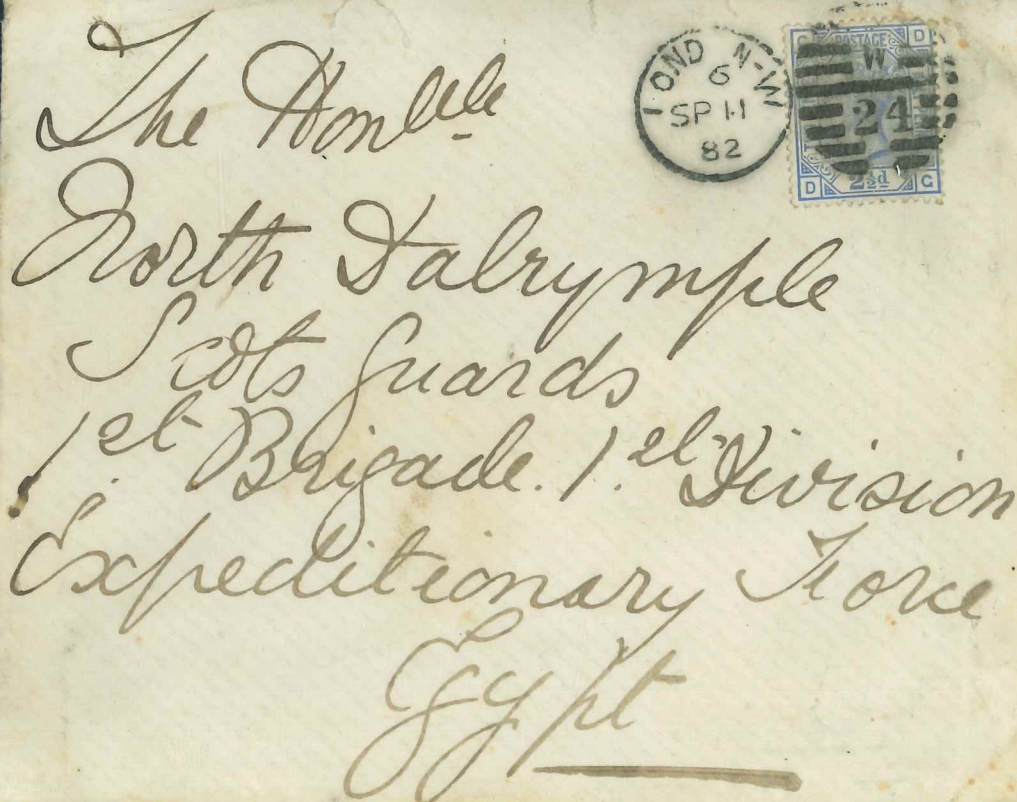 The Honble
North Dalrymple
Scots Guards
1st Brigade. 1st Division
Expeditionary Force
Egypt
LOND N-W
6
SP 11
82
POSTAGE
D
W
24
D
2½d
G